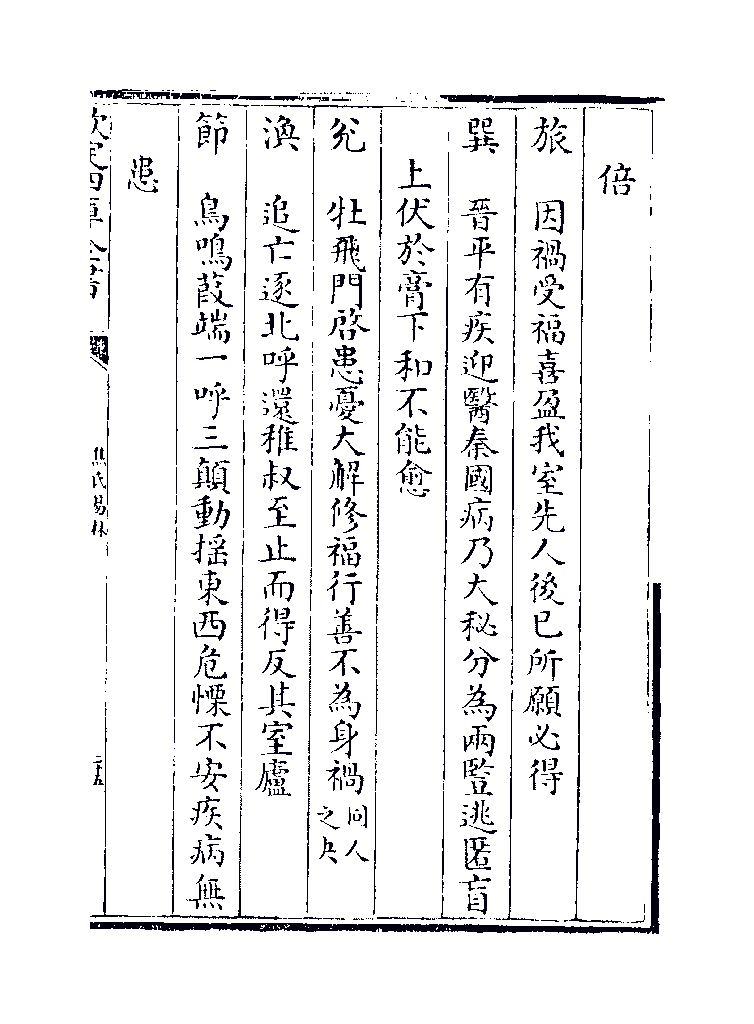 倍
旅　因禍受福喜盈我室先人後已所願必得
巽　晉平有疾迎醫秦國病乃大秘分為兩豎逃匿肓
上伏於膏下和不能愈
兊　牡飛門啓患憂大解修福行善不為身禍同人之夬
渙　追亡逐北呼還稚叔至止而得反其室廬
節　鳥鳴葭端一呼三顛動揺東西危慄不安疾病無
患
欽定四庫全書
焦氏易林